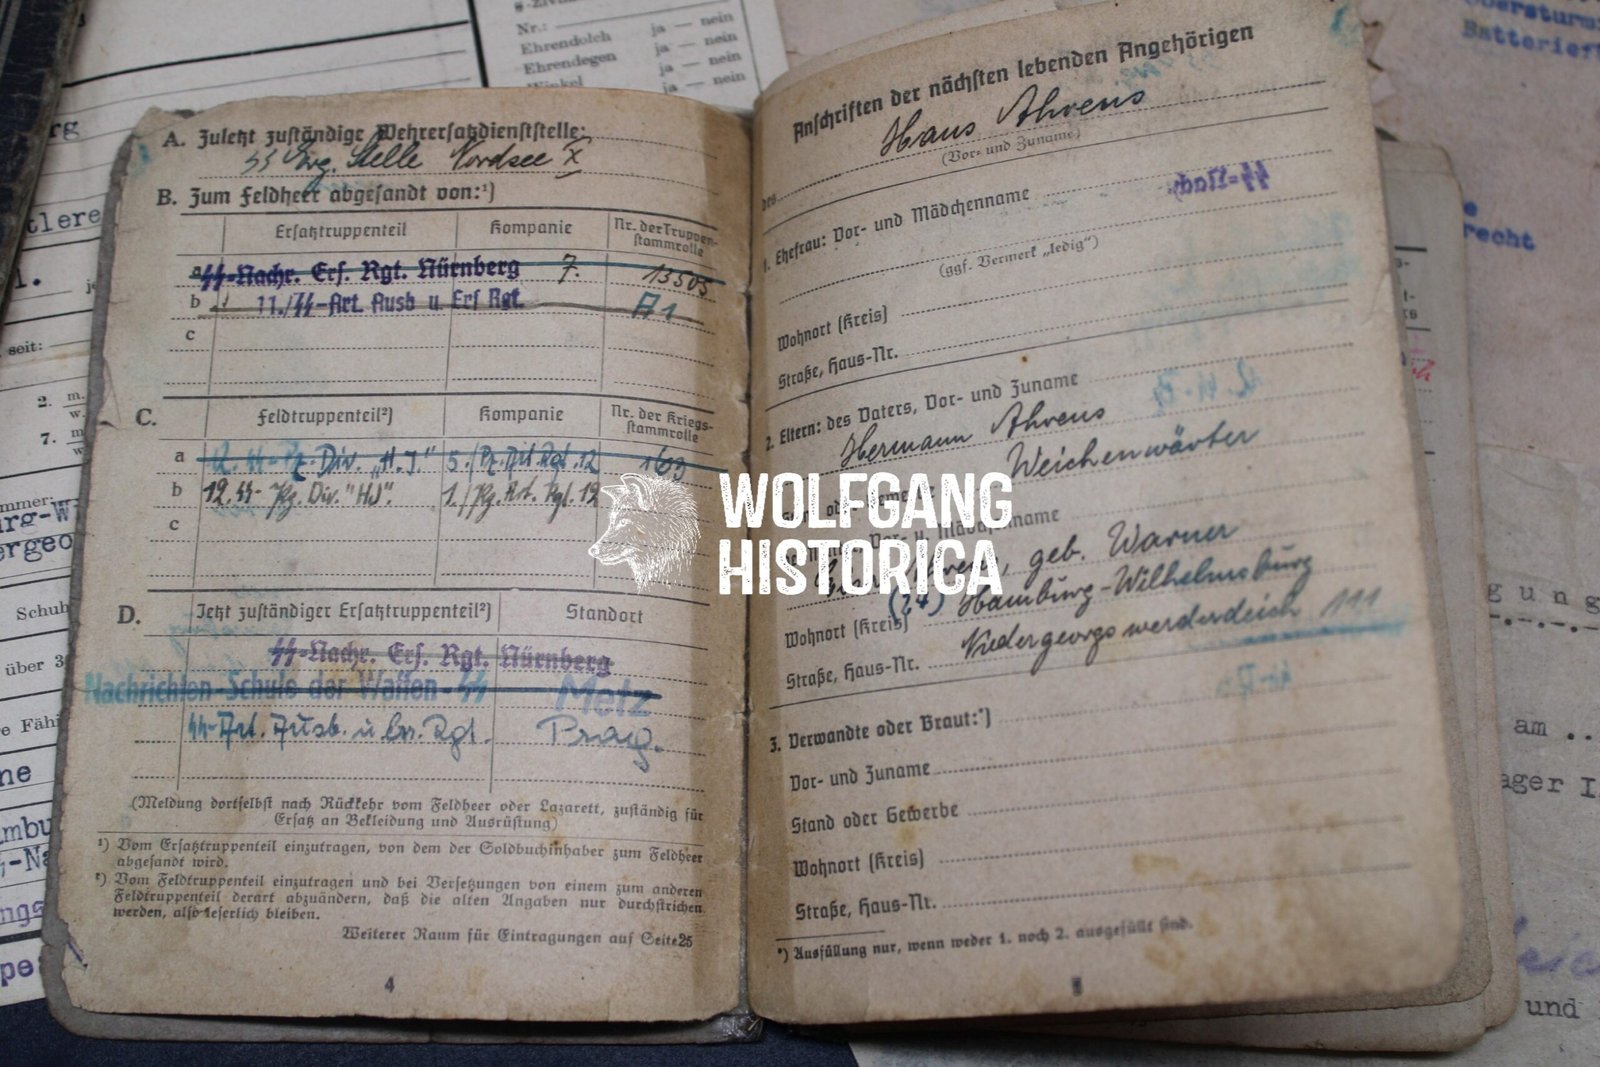 g-Zivil
Nr.: ja — nein
Ehrendolch ja — nein
Ehrendegen ja — nein
Winkel ja — nein
A. Zuletzt zuständige Wehrersatzdienststelle:
SS Erg. Stelle Nordsee X
B. Zum Feldheer abgesandt von:¹)
Ersatztruppenteil Kompanie Nr. der Truppen-
stammrolle
a SS-Nachr. Ers. Rgt. Nürnberg 7. 13505
b 11./SS-Art. Ausb u. Ers Rgt. A1
c
C. Feldtruppenteil²) Kompanie Nr. der Kriegs-
stammrolle
a 12. SS-Pz.-Div. „H.J." 5./Pz. Art Rgt. 12 163
b 12. SS- Pz. Div. "HJ". 1./Pz. Art. Rgt. 12
c
D. Jetzt zuständiger Ersatztruppenteil²) Standort
SS-Nachr. Ers. Rgt. Nürnberg
Nachrichten-Schule der Waffen-SS Metz
SS-Art. Ausb. u. Ers. Rgt. Prag.
(Meldung dortselbst nach Rückkehr vom Feldheer oder Lazarett, zuständig für
Ersatz an Bekleidung und Ausrüstung)
¹) Vom Ersatztruppenteil einzutragen, von dem der Soldbuchinhaber zum Feldheer
abgesandt wird.
²) Vom Feldtruppenteil einzutragen und bei Versetzungen von einem zum anderen
Feldtruppenteil derart abzuändern, daß die alten Angaben nur durchstrichen
werden, also leserlich bleiben.
Weiterer Raum für Eintragungen auf Seite 25
4
Anschriften der nächsten lebenden Angehörigen
des Hans Ahrens
(Vor- und Zuname)
1. Ehefrau: Vor- und Mädchenname
(ggf. Vermerk „ledig")
Wohnort (Kreis)
Straße, Haus-Nr.
2. Eltern: des Vaters, Vor- und Zuname
Hermann Ahrens
Weichenwärter
Mädchenname
Ahrens, geb. Warner
Wohnort (Kreis) (24) Hamburg-Wilhelmsburg
Straße, Haus-Nr. Niedergeorgswerderdeich 111
3. Verwandte oder Braut:*)
Vor- und Zuname
Stand oder Gewerbe
Wohnort (Kreis)
Straße, Haus-Nr.
*) Ausfüllung nur, wenn weder 1. noch 2. ausgefüllt sind.
WOLFGANG
HISTORICA
seit:
2. m.
w.
7. m
w
Schuh
über 3
recht
am ..
und